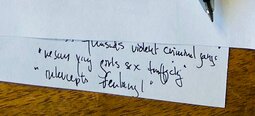 violent criminal gangs
" rescues young girls sex trafficking"
" intercepts fentanyl"